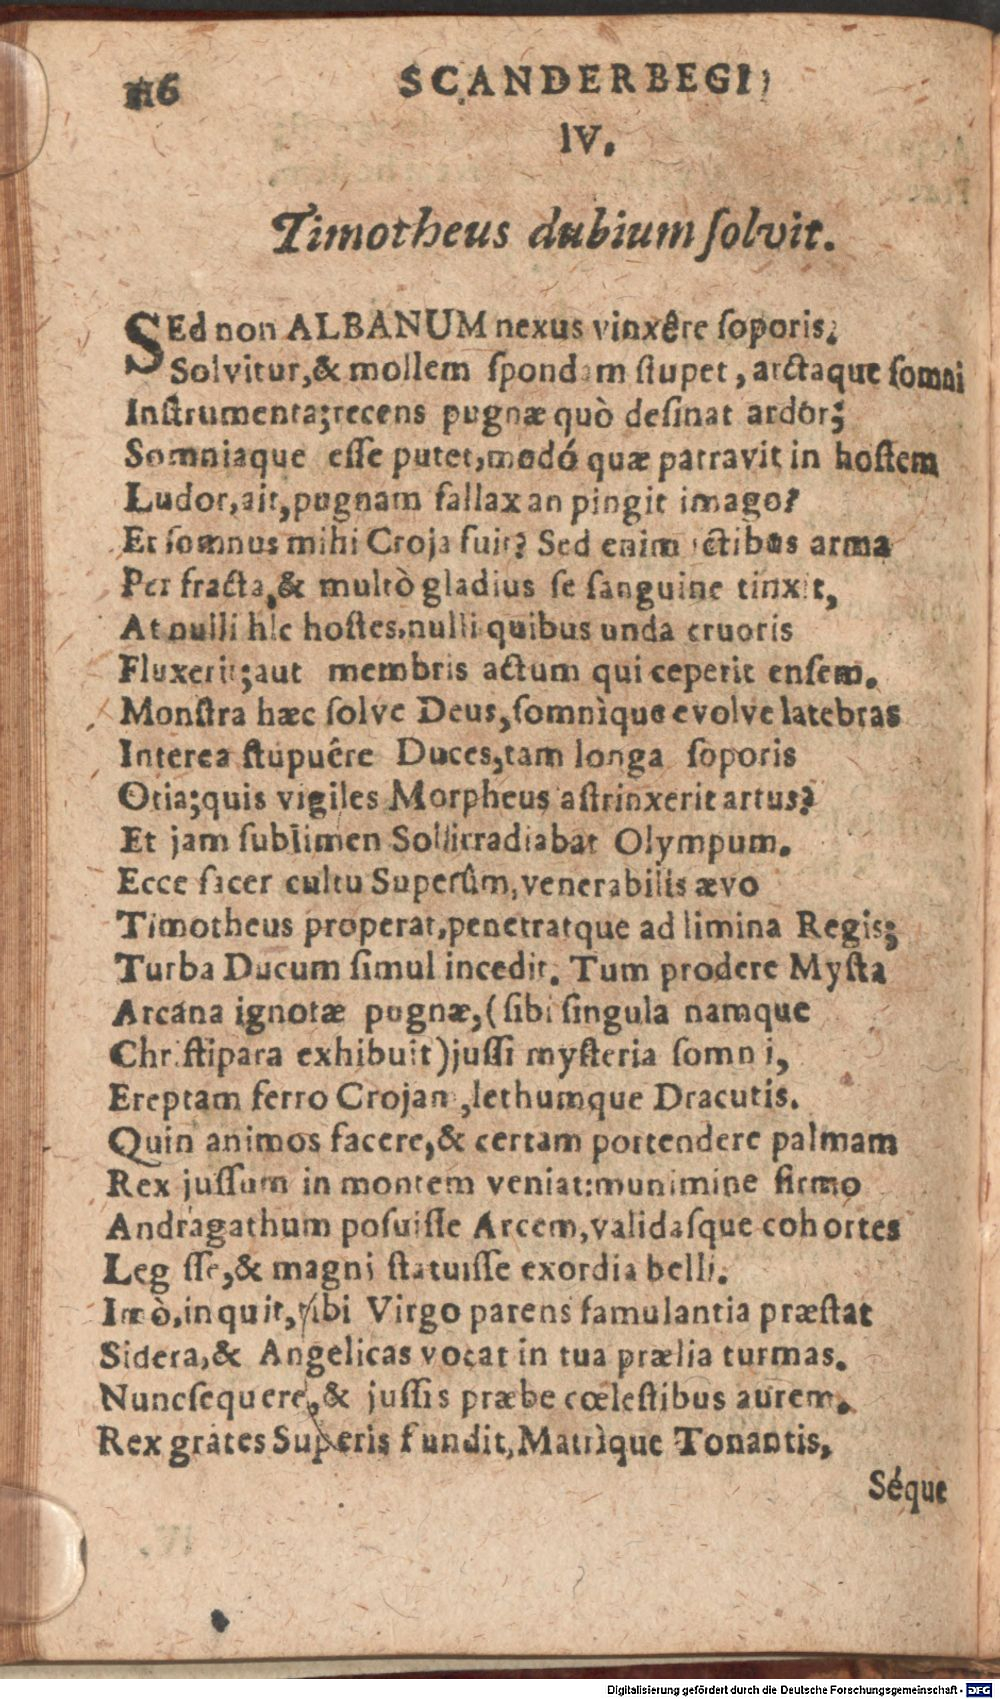 116 SCANDERBEGI
IV.
Timotheus dubium ſolvit.
SEd non ALBANUM nexus vinxêre ſoporis;
Solvitur,& mollem ſpondam ſtupet, arctaque ſomni
Inſtrumenta;recens pugnæ quò deſinat ardor;
Somniaque eſſe putet,modó quæ patravit in hoſtem
Ludor,ait,pugnam fallax an pingit imago?
Et ſomnus mihi Croja fuit? Sed enim ictibus arma
Per fracta,& multò gladius ſe ſanguine tinxit,
At nulli hîc hoſtes,nulli quibus unda cruoris
Fluxerit;aut membris actum qui ceperit enſem.
Monſtra hæc ſolve Deus,ſomnìque evolve latebras
Interea ſtupuêre Duces,tam longa ſoporis
Otia;quis vigiles Morpheus aſtrinxerit artus?
Et jam ſublimen Sol irradiabat Olympum.
Ecce ſacer cultu Superûm,venerabilis ævo
Timotheus properat,penetratque ad limina Regis;
Turba Ducum ſimul incedit. Tum prodere Myſta
Arcana ignotæ pugnæ,(ſibi ſingula namque
Chriſtipara exhibuit)juſſi myſteria ſomni,
Ereptam ferro Crojam,lethumque Dracutis.
Quin animos facere,& certam portendere palmam
Rex juſſum in montem veniat:munimine firmo
Andragathum poſuiſſe Arcem,validaſque cohortes
Legiſſe,& magni ſtatuiſſe exordia belli.
Imò,inquit,tibi Virgo parens famulantia præſtat
Sidera,& Angelicas vocat in tua prælia turmas.
Nuncſequere,& juſſis præbe cœleſtibus aurem.
Rex grates Superis fundit,Matrìque Tonantis,
Séque
Digitalisierung gefördert durch die Deutsche Forschungsgemeinschaft - DFG